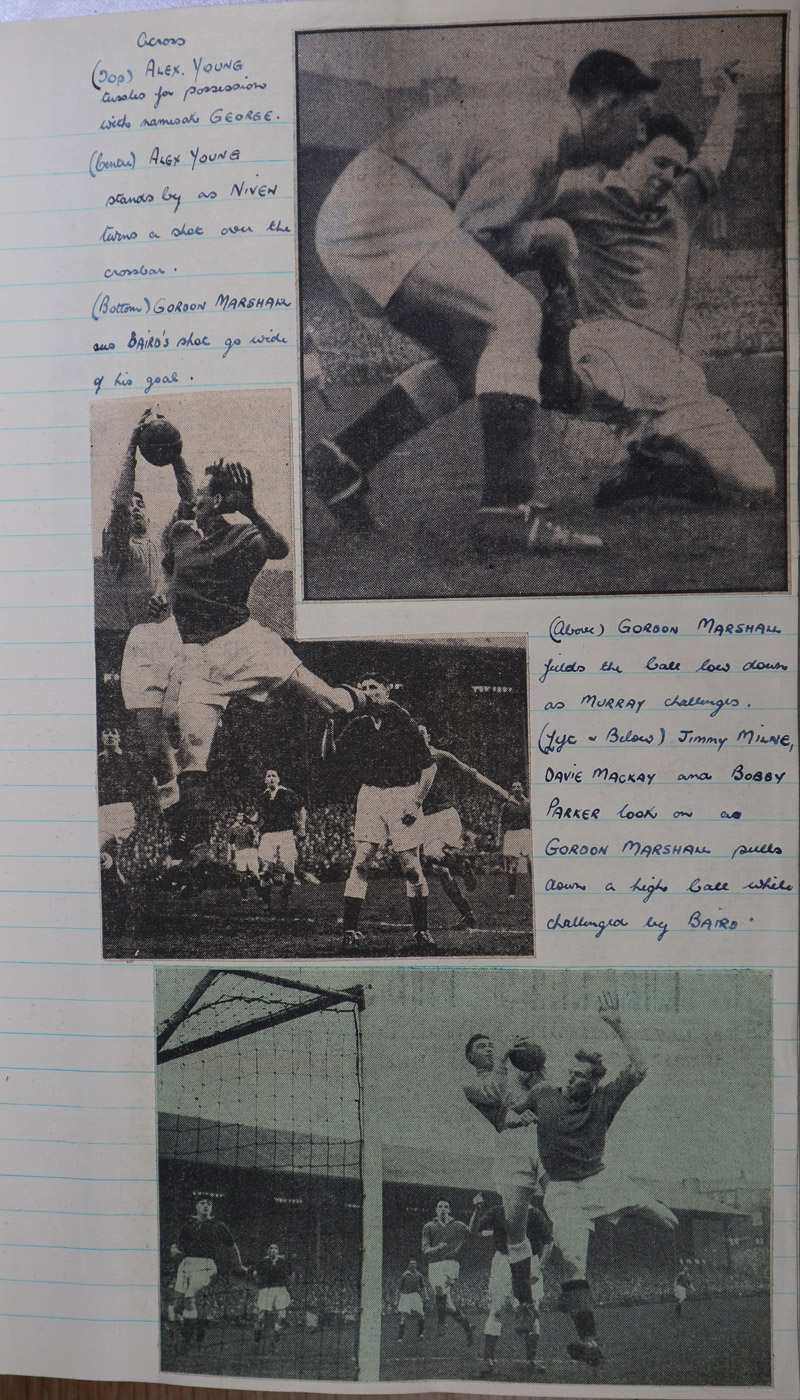 Across
(Top) ALEX. YOUNG
tussles for possession
with namesake GEORGE.
(Centre) ALEX YOUNG
stands by as NIVEN
turns a shot over the
crossbar.
(Bottom) GORDON MARSHALL
sees BAIRD'S shot go wide
of his goal.
(Above) GORDON MARSHALL
fields the ball low down
as MURRAY challenges.
(Left & Below) JIMMY MILNE,
DAVIE MACKAY and BOBBY
PARKER look on as
GORDON MARSHALL pulls
down a high ball while
challenged by BAIRD.